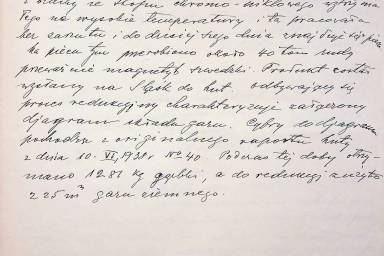 z blachy ze stopu chromo-niklowego wytrzyma
łego na wysokie temperatury i ta pracowała
bez zarzutu i do dzisiejszego dnia znajduje się
Na piecu tym przerobiono około 40 ton rudy
przeważnie magnetyt szwedzki. Produkt został
wysłany na Śląsk do hut. odbywający się
proces redukcyjny charakteryzuje załączony
djagram składu gazu. Cyfry do djagramu
pochodzą z oryginalnego raportu huty
z dnia 10. VI. 1938 r No 40. Podczas tej doby otrzy-
mano 1287 kg gąbki, a do redukcji zużyto
225 m³ gazu ziemnego.